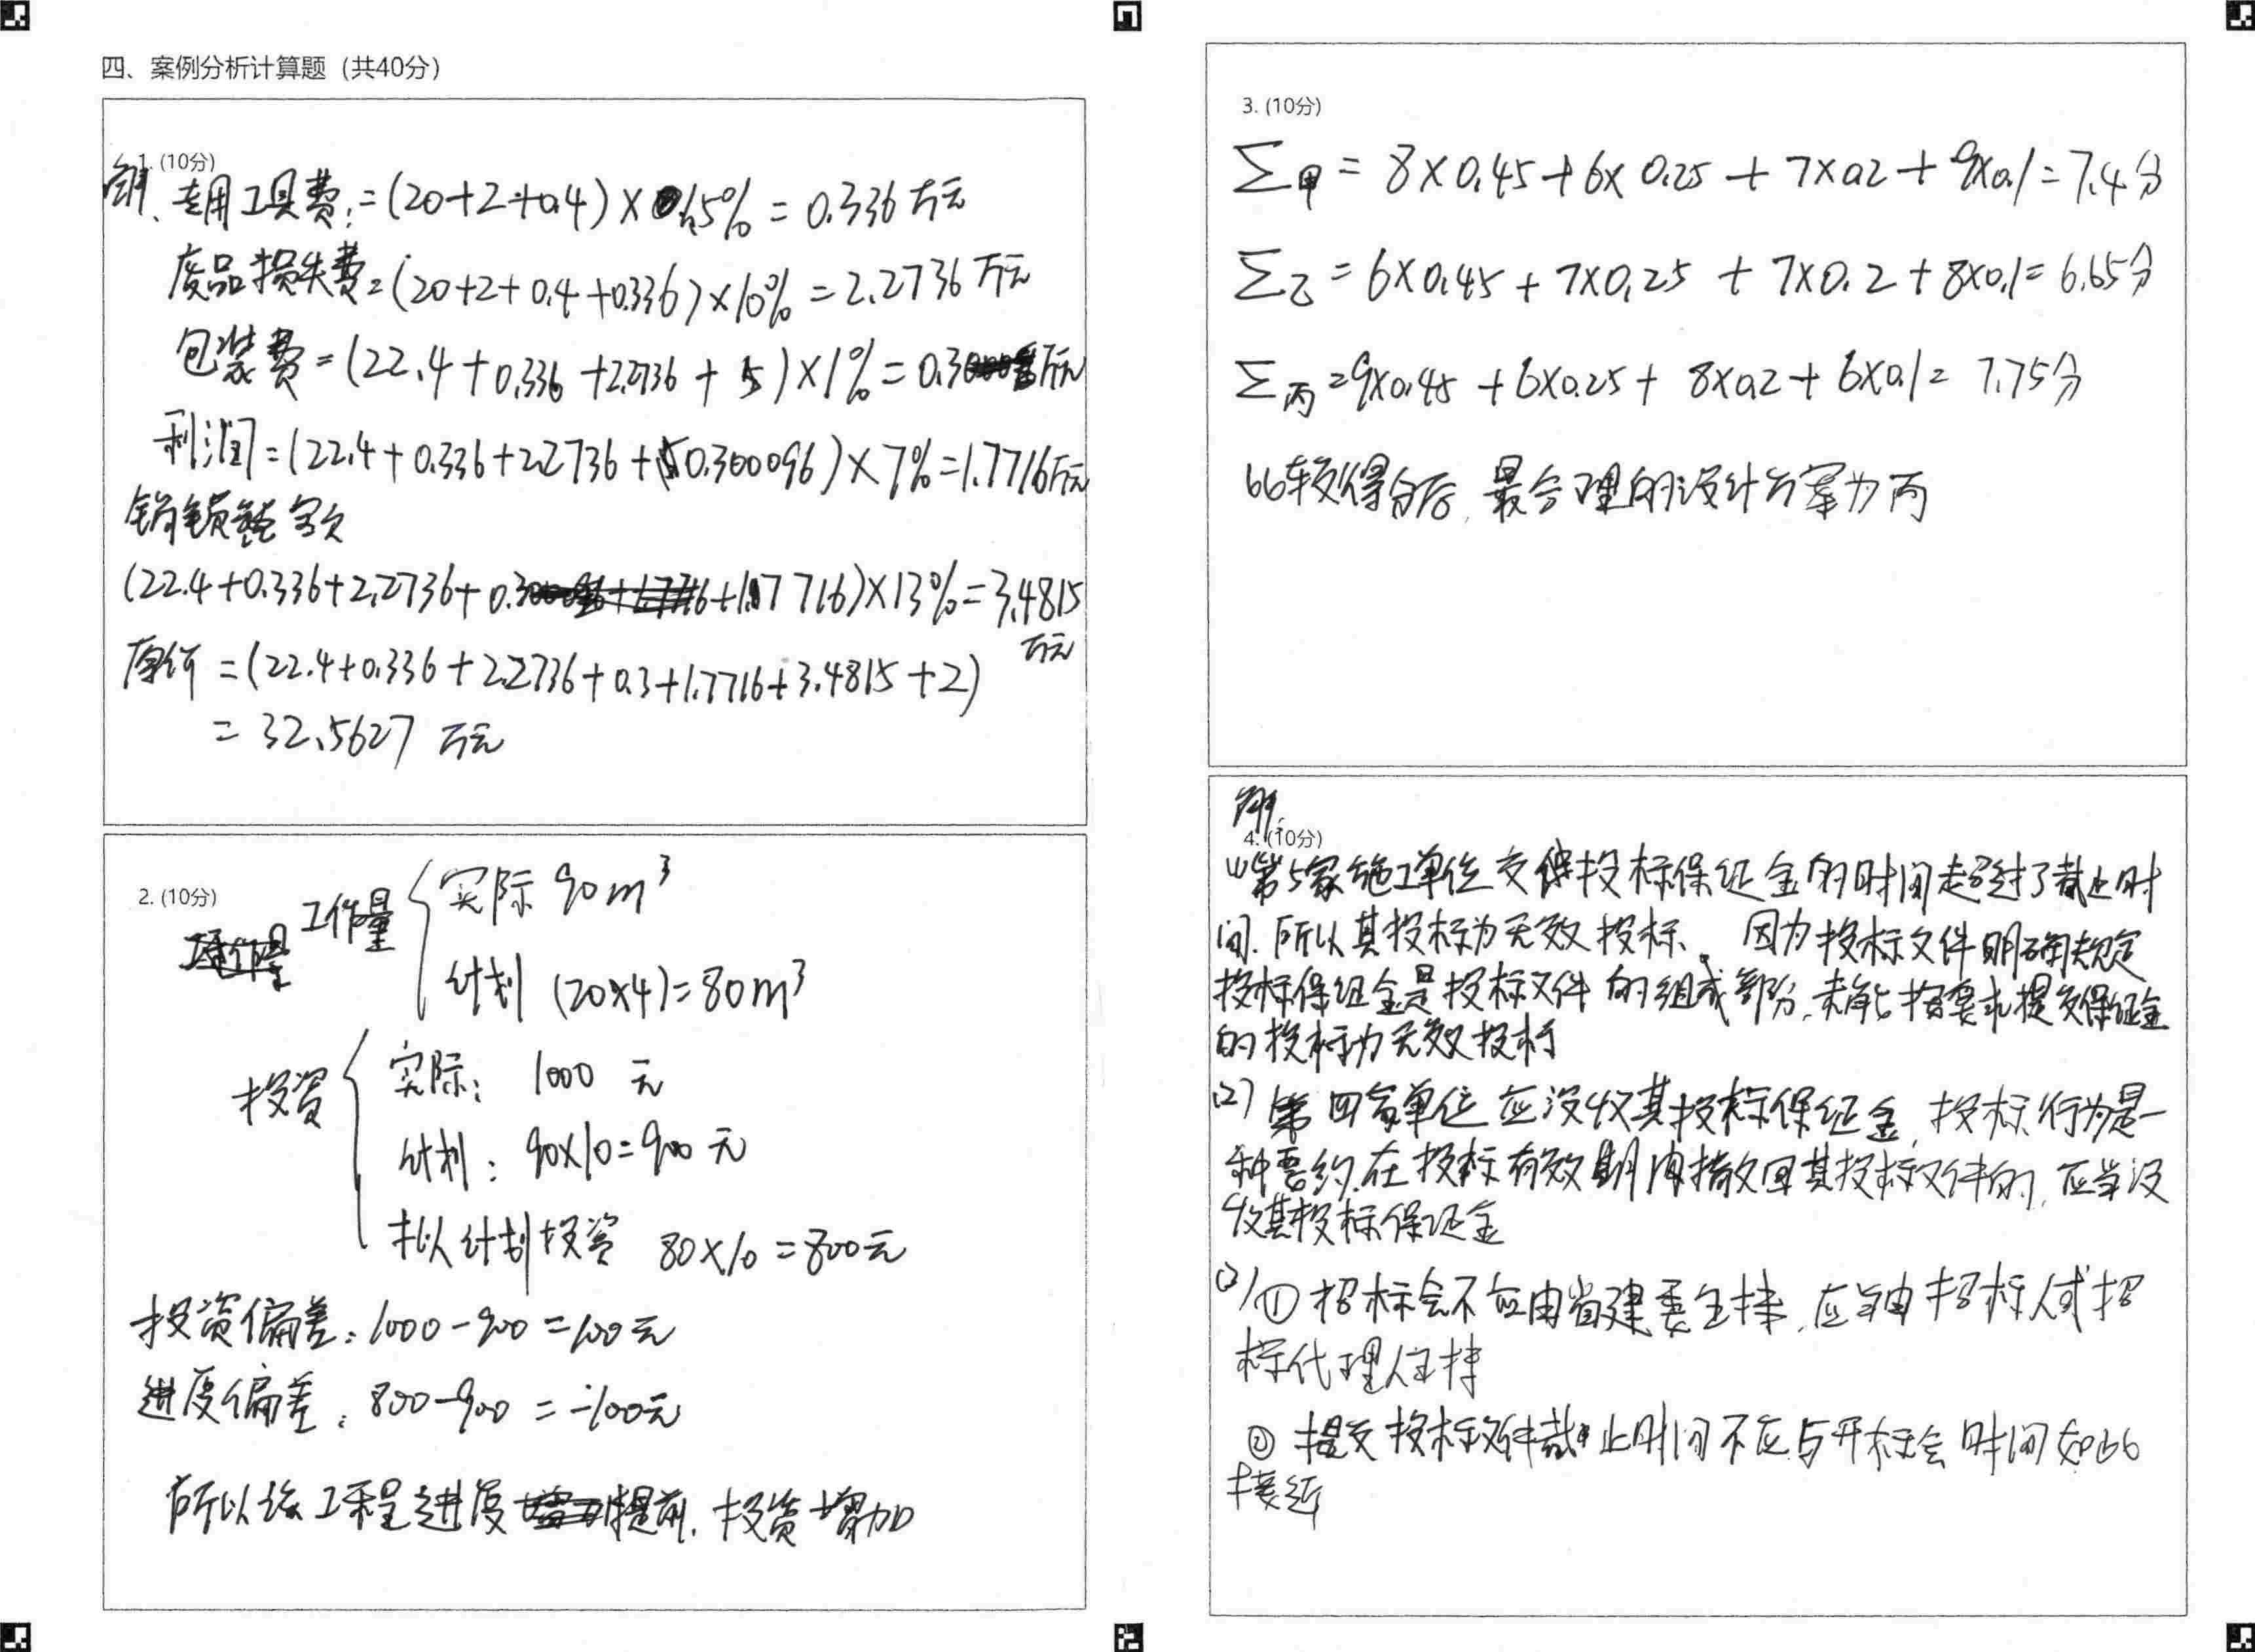 四、案例分析计算题（共40分）
1. (10分)
解、专用工具费:=(20+2+0.4)×1.5%=0.336万元
废品损失费=(20+2+0.4+0.336)×10%=2.2736万元
包装费=(22.4+0.336+2.2736+5)×1%=0.3万元
利润=(22.4+0.336+2.2736+0.300096)×7%=1.7716万元
销项税额
(22.4+0.336+2.2736+0.3+1.7716)×13%=3.4815
万元
原价=(22.4+0.336+2.2736+0.3+1.7716+3.4815+2)
=32.5627 万元
2. (10分)
工作量 实际 90m³
计划 (20×4)=80m³
投资 实际: 1000 元
计划: 90×10=900 元
拟计划投资 80×10=800元
投资偏差:1000-900=100元
进度偏差:800-900=-100元
所以该工程进度提前,投资增加
3. (10分)
Σ甲=8×0.45+6×0.25+7×0.2+9×0.1=7.4分
Σ乙=6×0.45+7×0.25+7×0.2+8×0.1=6.65分
Σ丙=9×0.45+6×0.25+8×0.2+6×0.1=7.75分
比较得分后,最合理的设计方案为丙
解:
4. (10分)
(1)第5家施工单位交保投标保证金的时间超过了截止时
间.所以其投标为无效投标。因为投标文件明确规定
投标保证金是投标文件的组成部分,未能按要求提交保证金
的投标为无效投标
(2)第四家单位应没收其投标保证金,投标行为是一
种要约.在投标有效期内撤回其投标文件的,应当没
收其投标保证金
(3)①招标会不应由省建委主持,应当由招标人或招
标代理人主持
②提交投标文件截止时间不应与开标会时间如此
接近